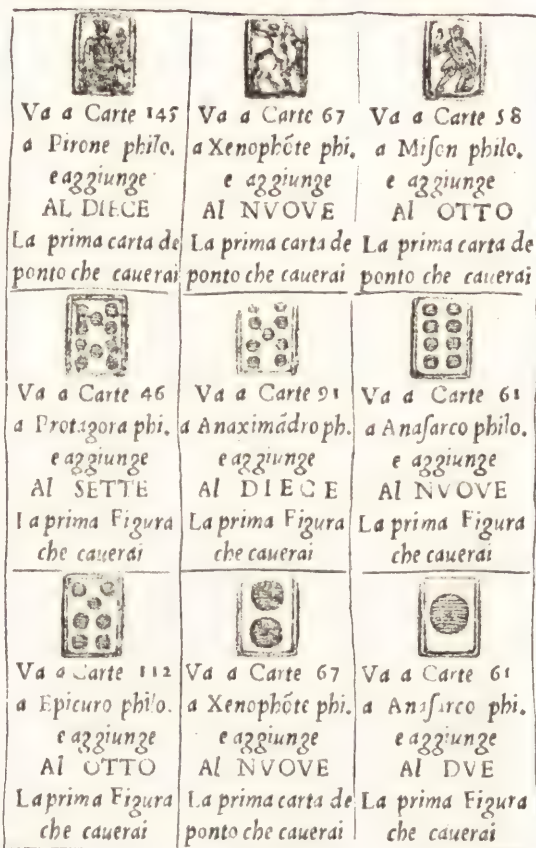 Va a Carte 145
a Pirone philo.
e aggiunge
AL DIECE
La prima carta de
ponto che cauerai
Va a Carte 67
a Xenophõte phi.
e aggiunge
Al NVOVE
La prima carta de
ponto che cauerai
Va a Carte 58
a Miſon philo.
e aggiunge
Al OTTO
La prima carta de
ponto che cauerai
Va a Carte 46
a Protagora phi.
e aggiunge
Al SETTE
La prima Figura
che cauerai
Va a Carte 91
a Anaximãdro ph.
e aggiunge
Al DIECE
La prima Figura
che cauerai
Va a Carte 61
a Anaſarco philo.
e aggiunge
Al NVOVE
La prima Figura
che cauerai
Va a Carte 112
a Epicuro philo.
e aggiunge
Al OTTO
La prima Figura
che cauerai
Va a Carte 67
a Xenophõte phi.
e aggiunge
Al NVOVE
La prima carta de
ponto che cauerai
Va a Carte 61
a Anaſarco phi.
e aggiunge
Al DVE
La prima Figura
che cauerai